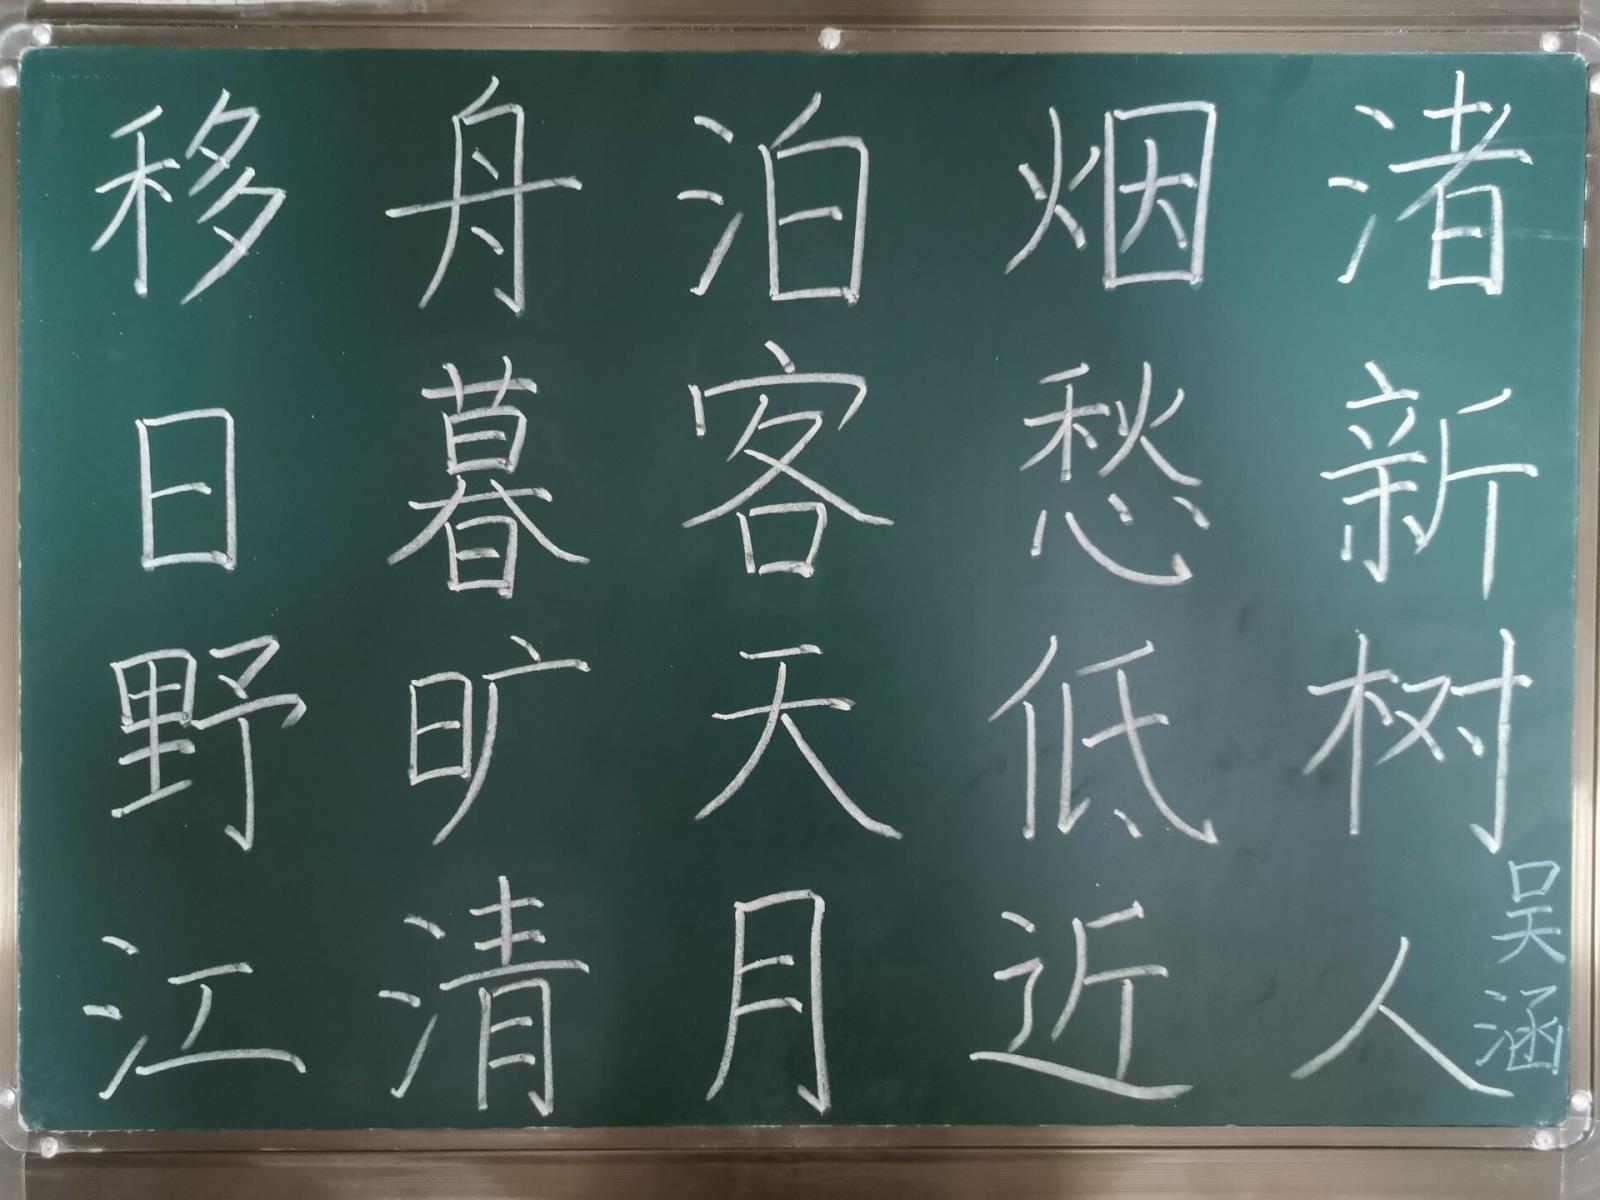 移舟泊烟渚
日暮客愁新
野旷天低树
江清月近人
吴涵